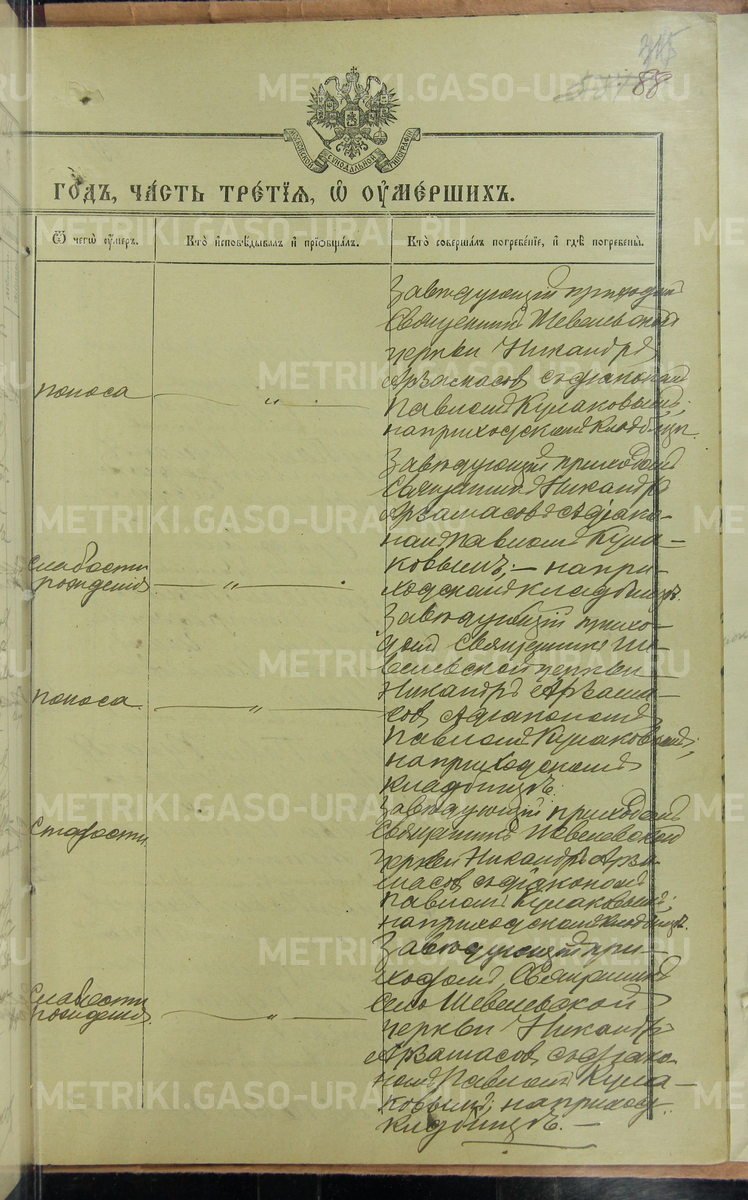 315
88
МОСКОВСКОЙ СѴНОДАЛЬНОЙ ТИПОГРАФІИ
ГОДЪ, ЧАСТЬ ТРЕТІЯ, Ѽ ОУМЕРШИХЪ.
Ѿ чегѡ оумеръ.
Кто исповѣдывалъ и пріобщалъ.
Кто совершалъ погребеніе, и гдѣ погребены.
поноса
— „ —
Завѣдующій приходомъ
Священникъ Шевелевской
церкви Никандръ
Арзамасовъ съ діакономъ
Павломъ Кулаковымъ;
на приходскомъ кладбищѣ.
слабости
рожденія
— „ —
Завѣдующій приходомъ
Священникъ Никандръ
Арзамасовъ съ діако-
номъ Павломъ Кула-
ковымъ; — на при-
ходскомъ кладбищѣ.
поноса
— „ —
Завѣдующій прихо-
домъ Священникъ Ше-
велевской церкви
Никандръ Арзама-
совъ съ діакономъ
Павломъ Кулаковымъ;
на приходскомъ
кладбищѣ.
Старости
Завѣдующій приходомъ
Священникъ Шевелевской
церкви Никандръ Арза-
масовъ съ діакономъ
Павломъ Кулаковымъ;
на приходскомъ кладбищѣ.
Слабости
рожденія
— „ —
Завѣдующій при-
ходомъ Священникъ
Село Шевелевской
церкви Никандръ
Арзамасовъ съ діако-
номъ Павломъ Кула-
ковымъ; на приход.
кладбищѣ. —
METRIKI.GASO-URAL.RU